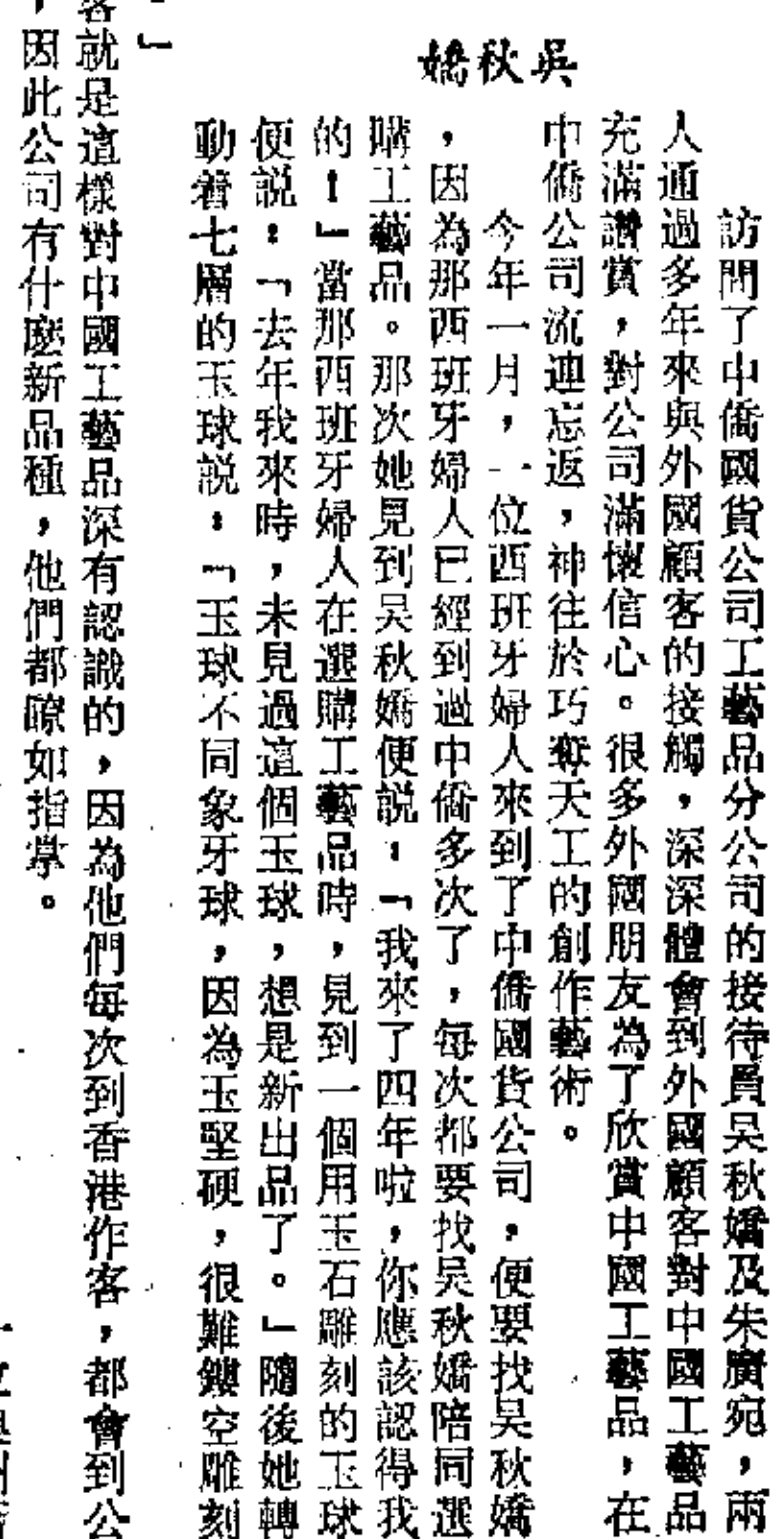 吳秋嬌
訪問了中僑國貨公司工藝品分公司的接待員吴秋嬌及朱廣宛，兩
人通過多年來與外國顧客的接觸，深深體會到外國顧客對中國工藝品
充滿讚賞，對公司滿懷信心。很多外國朋友為了欣賞中國工藝品，在
中僑公司流連忘返，神往於巧奪天工的創作藝術。
今年一月，一位西班牙婦人來到了中僑國貨公司，便要找吴秋嬌
，因為那西班牙婦人已經到過中僑多次了，每次都要找吴秋嬌陪同選
購工藝品。那次她見到吴秋嬌便説：「我來了四年啦，你應該認得我
的！」當那西班牙婦人在選購工藝品時，見到一個用玉石雕刻的玉球
便説：「去年我來時，未見過這個玉球，想是新出品了。」隨後她轉
動着七層的玉球説：「玉球不同象牙球，因為玉堅硬，很難鏤空雕刻
」
客就是這樣對中國工藝品深有認識的，因為他們每次到香港作客，都會到公
，因此公司有什麼新品種，他們都瞭如指掌。